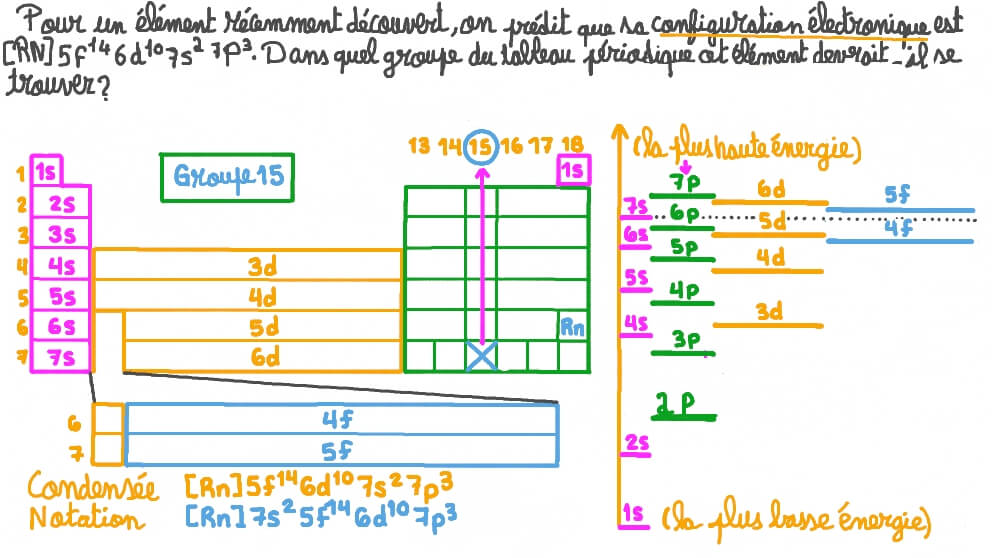 Pour un élément récemment découvert, on prédit que sa configuration électronique est
[RN] 5f¹⁴ 6d¹⁰ 7s² 7P³. Dans quel groupe du tableau périodique cet élément devrait-il se
trouver?
13 14 15 16 17 18
Groupe 15
1 1s
1s
2 2s
3 3s
4 4s 3d
5 5s 4d
6 6s 5d Rn
7 7s 6d
6 4f
7 5f
Condensée [Rn]5f¹⁴6d¹⁰7s²7p³
Notation [Rn]7s²5f¹⁴6d¹⁰7p³
(la plus haute énergie)
7p 6d 5f
7s 6p 5d 4f
6s 5p 4d
5s 4p 3d
4s 3p
2p
2s
1s (la plus basse énergie)